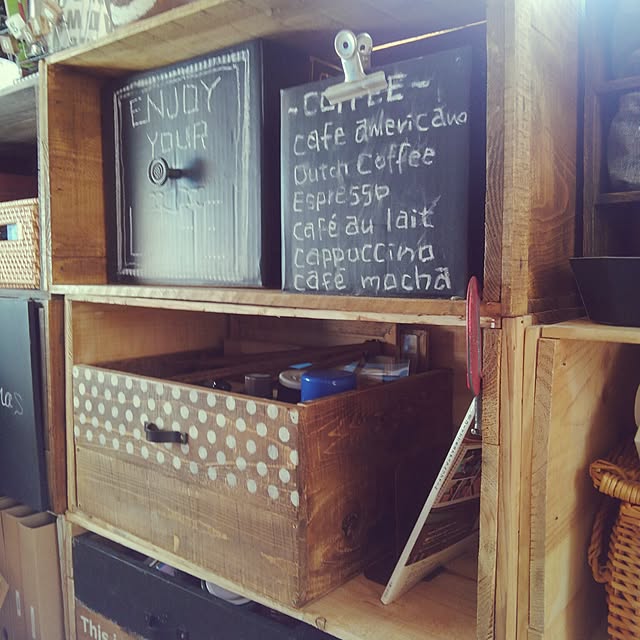 ENJOY
YOUR
- COFFEE -
café americano
Dutch Coffee
Espresso
café au lait
cappuccino
café mocha
This